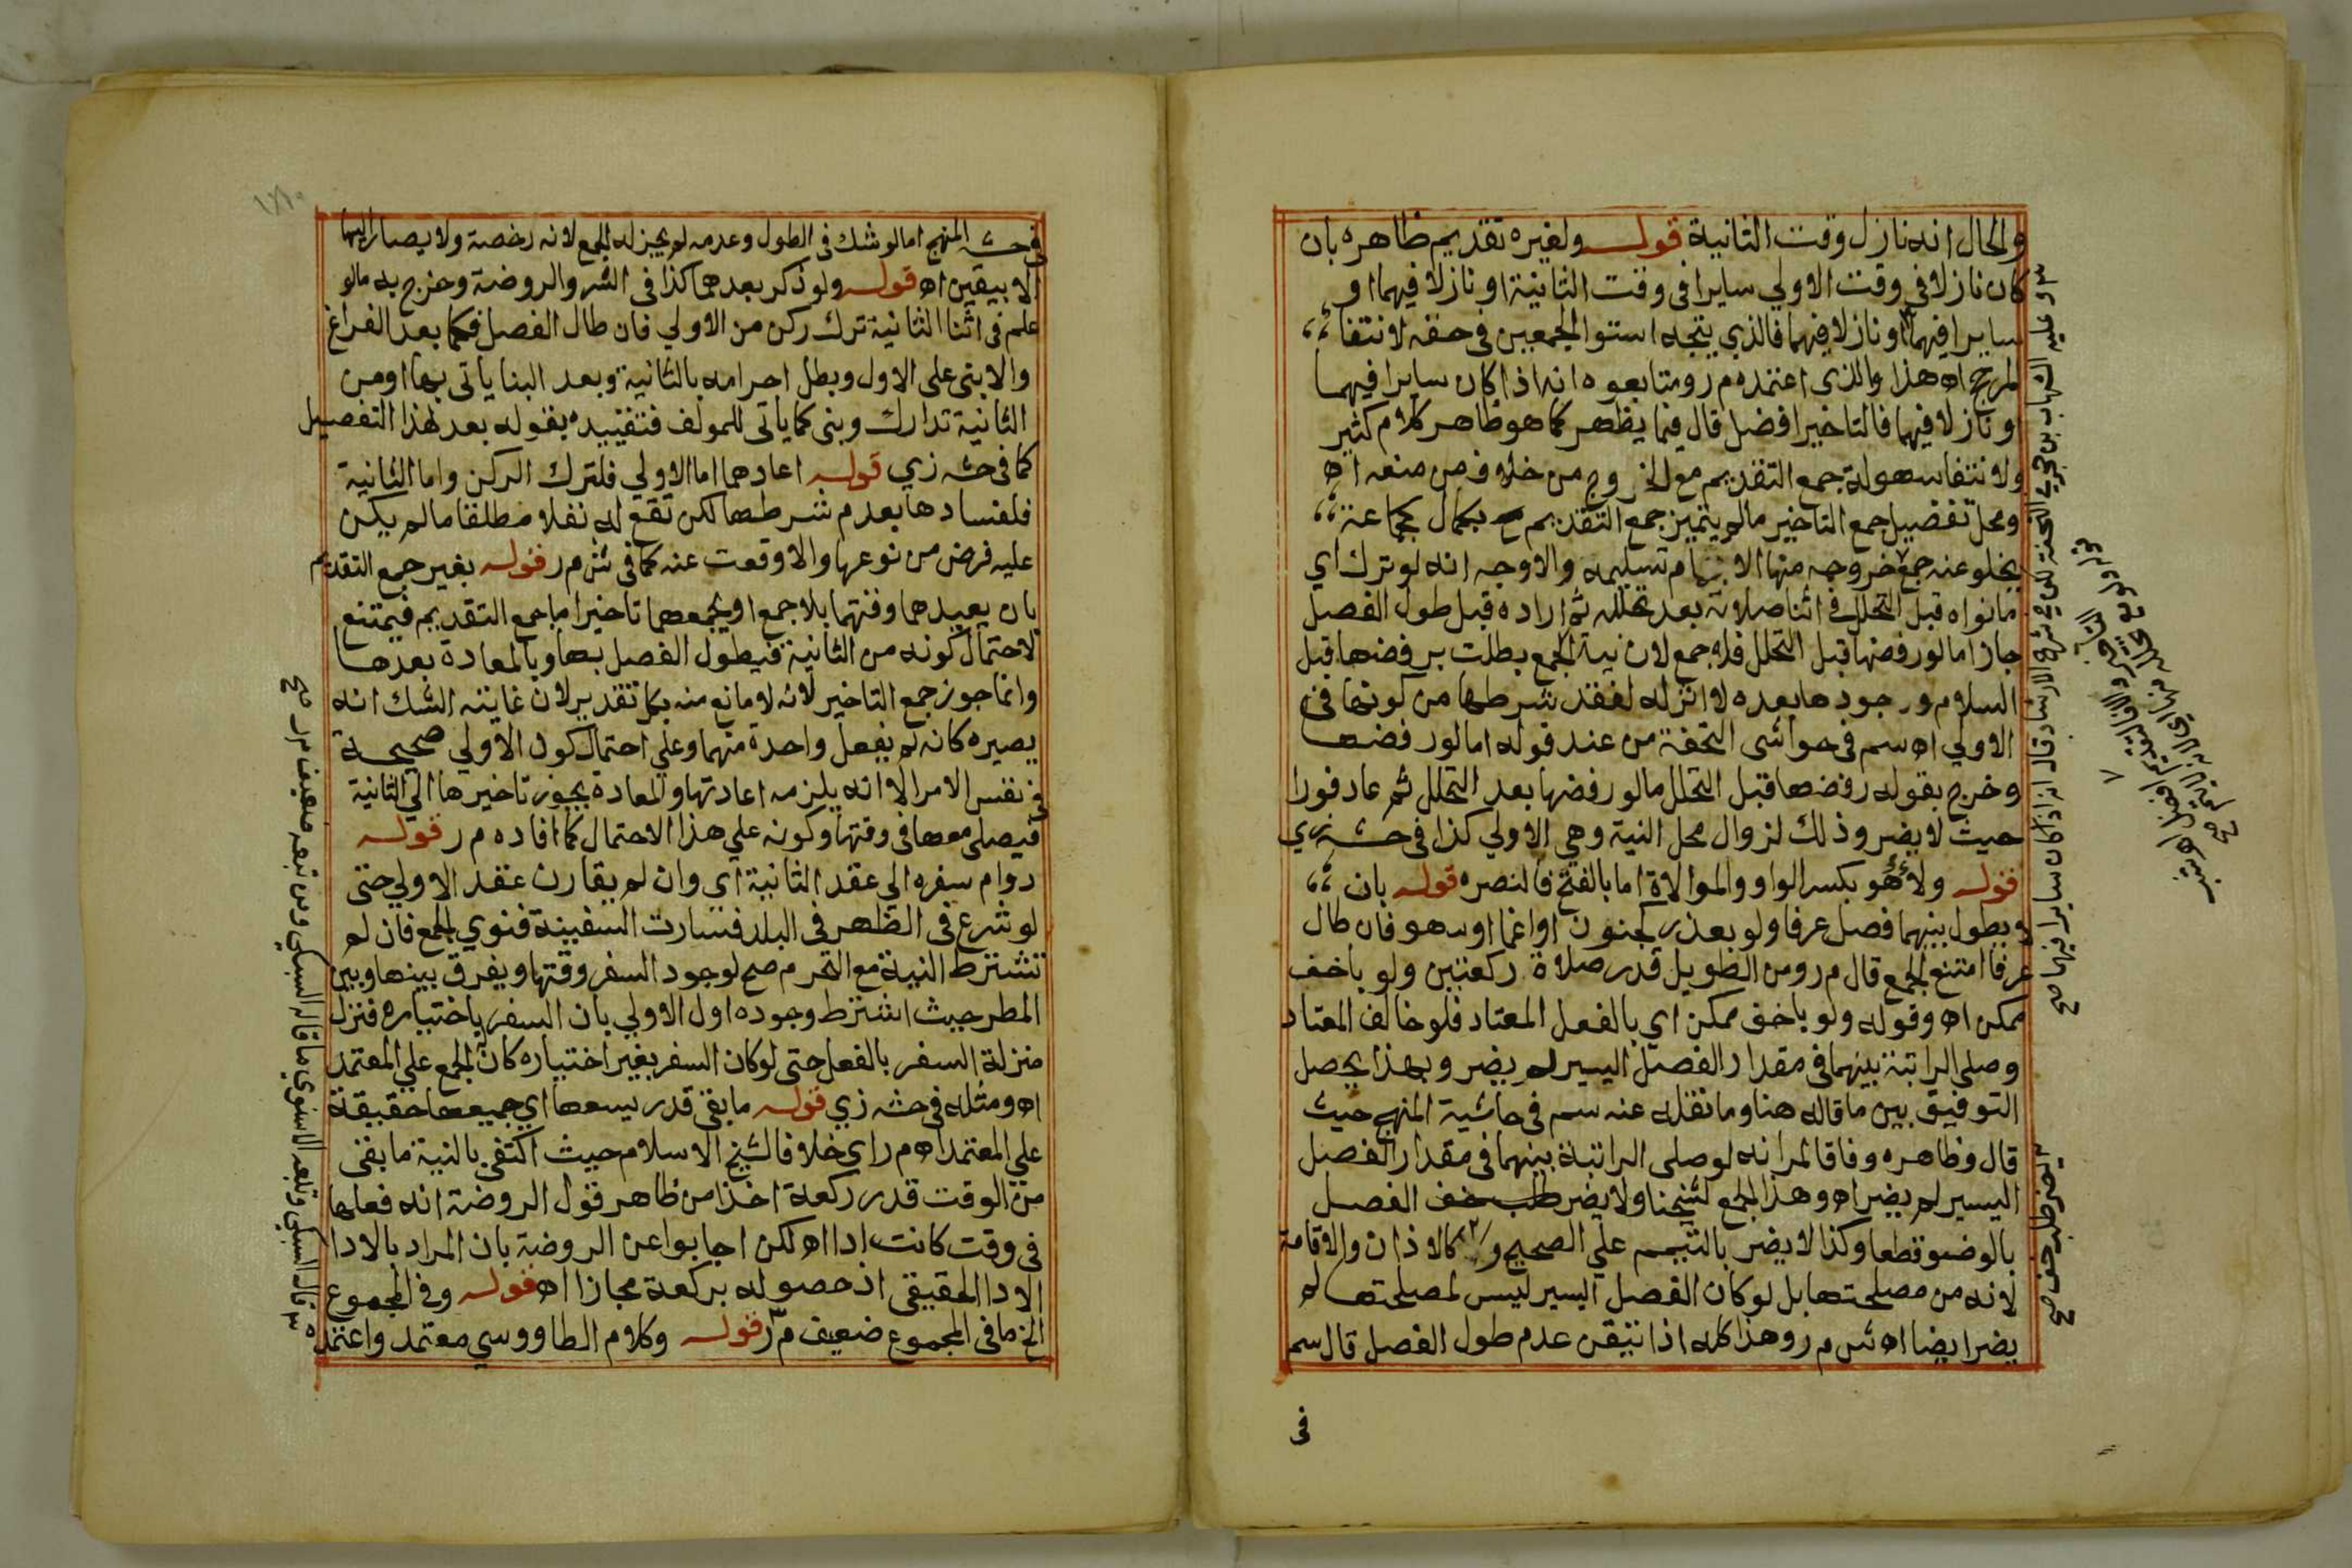 والحال انه نازل وقت الثانية قوله ولغيره تقديم ظاهره بان
كان نازلا في وقت الاولي سايرا في وقت الثانية او نازلا فيهما او
سايرا فيهما او نازلا فيهما فالذي يتجه استوا الجمعين في حقه لانتفا
المرجح اه هذا والذي اعتمده م ر ومتابعوه انه اذا كان سايرا فيهما
او نازلا فيهما فالتاخير افضل قال فيما يظهر كما هو ظاهر كلام كثير
ولانتفا سهولة جمع التقديم مع الخروج من خلاف من منعه اه
ومحل تفضيل جمع التاخير مالم يتميز جمع التقديم بكمال كجماعة
يخلو عنه جمع خروجه منها الا بتمام تسليمه والاوجه انه لو ترك اي
مانواه قبل التحلل في اثنا صلاته بعد تحلله ثم اراده قبل طول الفصل
جاز اما لو رفضها قبل التحلل فله جمع لان نية الجمع بطلت برفضها قبل
السلام ووجودها بعده لا اثر له لفقد شرطها من كونها في
الاولي اه سم في حواشي التحفة من عند قوله اما لو رفضها
وخرج بقوله رفضها قبل التحلل مالو رفضها بعد التحلل ثم عاد فورا
حيث لا يضر وذلك لزوال محل النية وهي الاولي كذا في حشه زي
قوله ولاؤهو بكسر الواو والموالاة اما بالفتح فالنصره قوله بان
لا يطول بينهما فصل عرفا ولو بعذر كجنون او اغما او سهو فان طال
عرفا امتنع الجمع قال م ر ومن الطويل قدر صلاة ركعتين ولو باخف
ممكن اه وقوله ولو باخف ممكن اي بالفعل المعتاد فلو خالف المعتاد
وصلي الراتبة بينهما في مقدار الفصل اليسير لم يضر وبهذا يحصل
التوفيق بين ماقاله هنا وما نقله عنه سم في حاشية المنهج حيث
قال وظاهره وفاقا لمر انه لو صلى الراتبة بينهما في مقدار الفصل
اليسير لم يضر اه وهذا الجمع لشيخنا ولا يضر طلب خف الفصل
بالوضو قطعا وكذا لا يضر بالتيمم علي الصحيح و كالاذان والاقامة
لانه من مصلحتها بل لو كان الفصل اليسير ليس لمصلحتها لم
يضر ايضا اه ش م ر وهذا كله اذا تيقن عدم طول الفصل قال سم
في
٣ وعليه الشهاب بن حجر في التحفة لكن في شرح الارشاد قال انه اذا كان سايرا فيهما صح
لا يضر طلب خف صح
في حشه المنهج اما لو شك في الطول وعدمه لم يجز له الجمع لانه رخصة ولا يصار اليها
الا بيقين اه قوله ولو ذكر بعدهما كذا في الشر والروضة وخرج به مالو
علم في اثنا الثانية ترك ركن من الاولي فان طال الفصل فكما بعد الفراغ
والا بنى على الاول وبطل احرامه بالثانية وبعد البنا ياتى بها او من
الثانية تدارك وبنى كما ياتى للمولف فتقييده بقوله بعد لهذا التفصيل
كما في حشه زي قوله اعادهما اما الاولي فلترك الركن واما الثانية
فلفسادها بعدم شرطها لكن تقع له نفلا مطلقا مالم يكن
عليه فرض من نوعها والا وقعت عنه كما في ش م ر قوله بغير جمع التقديم
بان يعيدهما وقتهما بلا جمع او يجمعهما تاخيرا اما جمع التقديم فيمتنع
لاحتمال كونه من الثانية فيطول الفصل بها وبالمعادة بعدها
وانما جوز جمع التاخير لانه لا مانع منه بكل تقدير لان غايته الشك انه
يصيره كانه لم يفعل واحدة منهما وعلي احتمال كون الاولي صحيحة
في نفس الامر الا انه يلزمه اعادتها والمعادة يجوز تاخيرها الي الثانية
فيصلي معها في وقتها وكونه علي هذا الاحتمال كما افاده م ر قوله
دوام سفره الي عقد الثانية اي وان لم يقارن عقد الاولي حتى
لو شرع في الظهر في البلد فسارت السفينة فنوي الجمع فان لم
تشترط النية مع التحرم صح لوجود السفر وقتها ويفرق بينها وبين
المطر حيث اشترط وجوده اول الاولي بان السفر باختياره فنزل
منزلة السفر بالفعل حتى لو كان السفر بغير اختياره كان الجمع علي المعتمد
اه ومثله في حشه زي قوله مابقى قدر يسعها اي جميعها حقيقة
علي المعتمد اه م ر اي خلافا لشيخ الاسلام حيث اكتفى بالنية مابقى
من الوقت قدر ركعة اخذا من ظاهر قول الروضة انه فعلها
في وقت كانت ادا اه لكن اجابوا عن الروضة بان المراد بالادا
الادا الحقيقي اذ حصوله بركعة مجازا اه قوله وفي المجموع
الخ ما في المجموع ضعيف م ر قوله وكلام الطاووسي معتمد واعتمده